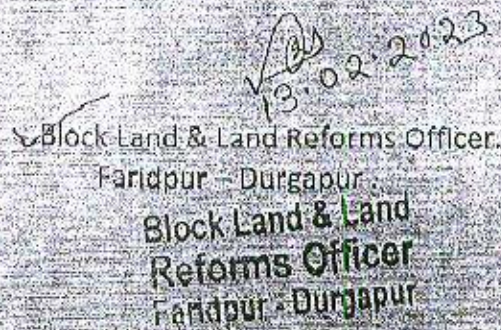 13.02.2023
Block Land & Land Reforms Officer.
Faridpur – Durgapur.
Block Land & Land
Reforms Officer
Faridpur - Durgapur